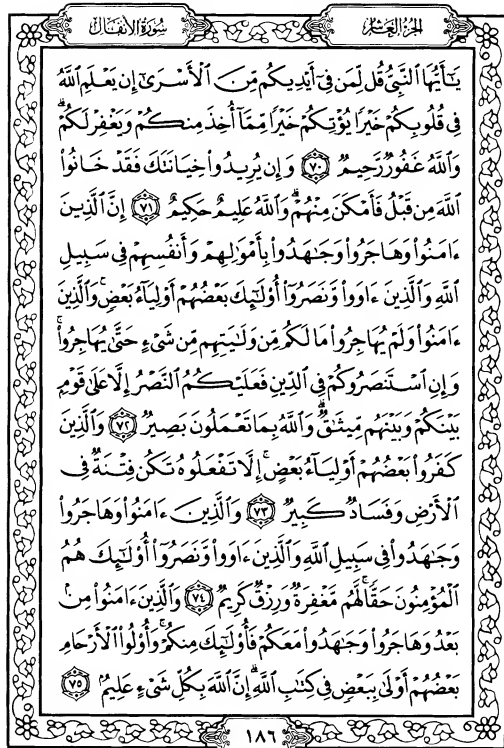 سُورَةُ الأَنْفَال
الجُزْءُ العَاشِرُ
يَٰٓأَيُّهَا ٱلنَّبِىُّ قُل لِّمَن فِىٓ أَيْدِيكُم مِّنَ ٱلْأَسْرَىٰٓ إِن يَعْلَمِ ٱللَّهُ
فِى قُلُوبِكُمْ خَيْرًا يُؤْتِكُمْ خَيْرًا مِّمَّآ أُخِذَ مِنكُمْ وَيَغْفِرْ لَكُمْ ۗ
وَٱللَّهُ غَفُورٌ رَّحِيمٌ ٧٠ وَإِن يُرِيدُوا۟ خِيَانَتَكَ فَقَدْ خَانُوا۟
ٱللَّهَ مِن قَبْلُ فَأَمْكَنَ مِنْهُمْ ۗ وَٱللَّهُ عَلِيمٌ حَكِيمٌ ٧١ إِنَّ ٱلَّذِينَ
ءَامَنُوا۟ وَهَاجَرُوا۟ وَجَٰهَدُوا۟ بِأَمْوَٰلِهِمْ وَأَنفُسِهِمْ فِى سَبِيلِ
ٱللَّهِ وَٱلَّذِينَ ءَاوَوا۟ وَّنَصَرُوٓا۟ أُو۟لَٰٓئِكَ بَعْضُهُمْ أَوْلِيَآءُ بَعْضٍ ۚ وَٱلَّذِينَ
ءَامَنُوا۟ وَلَمْ يُهَاجِرُوا۟ مَا لَكُم مِّن وَلَٰيَتِهِم مِّن شَىْءٍ حَتَّىٰ يُهَاجِرُوا۟ ۚ
وَإِنِ ٱسْتَنصَرُوكُمْ فِى ٱلدِّينِ فَعَلَيْكُمُ ٱلنَّصْرُ إِلَّا عَلَىٰ قَوْمٍۭ
بَيْنَكُمْ وَبَيْنَهُم مِّيثَٰقٌ ۗ وَٱللَّهُ بِمَا تَعْمَلُونَ بَصِيرٌ ٧٢ وَٱلَّذِينَ
كَفَرُوا۟ بَعْضُهُمْ أَوْلِيَآءُ بَعْضٍ ۚ إِلَّا تَفْعَلُوهُ تَكُن فِتْنَةٌ فِى
ٱلْأَرْضِ وَفَسَادٌ كَبِيرٌ ٧٣ وَٱلَّذِينَ ءَامَنُوا۟ وَهَاجَرُوا۟
وَجَٰهَدُوا۟ فِى سَبِيلِ ٱللَّهِ وَٱلَّذِينَ ءَاوَوا۟ وَّنَصَرُوٓا۟ أُو۟لَٰٓئِكَ هُمُ
ٱلْمُؤْمِنُونَ حَقًّا ۚ لَّهُم مَّغْفِرَةٌ وَرِزْقٌ كَرِيمٌ ٧٤ وَٱلَّذِينَ ءَامَنُوا۟ مِنۢ
بَعْدُ وَهَاجَرُوا۟ وَجَٰهَدُوا۟ مَعَكُمْ فَأُو۟لَٰٓئِكَ مِنكُمْ ۚ وَأُو۟لُوا۟ ٱلْأَرْحَامِ
بَعْضُهُمْ أَوْلَىٰ بِبَعْضٍ فِى كِتَٰبِ ٱللَّهِ ۗ إِنَّ ٱللَّهَ بِكُلِّ شَىْءٍ عَلِيمٌۢ ٧٥
١٨٦